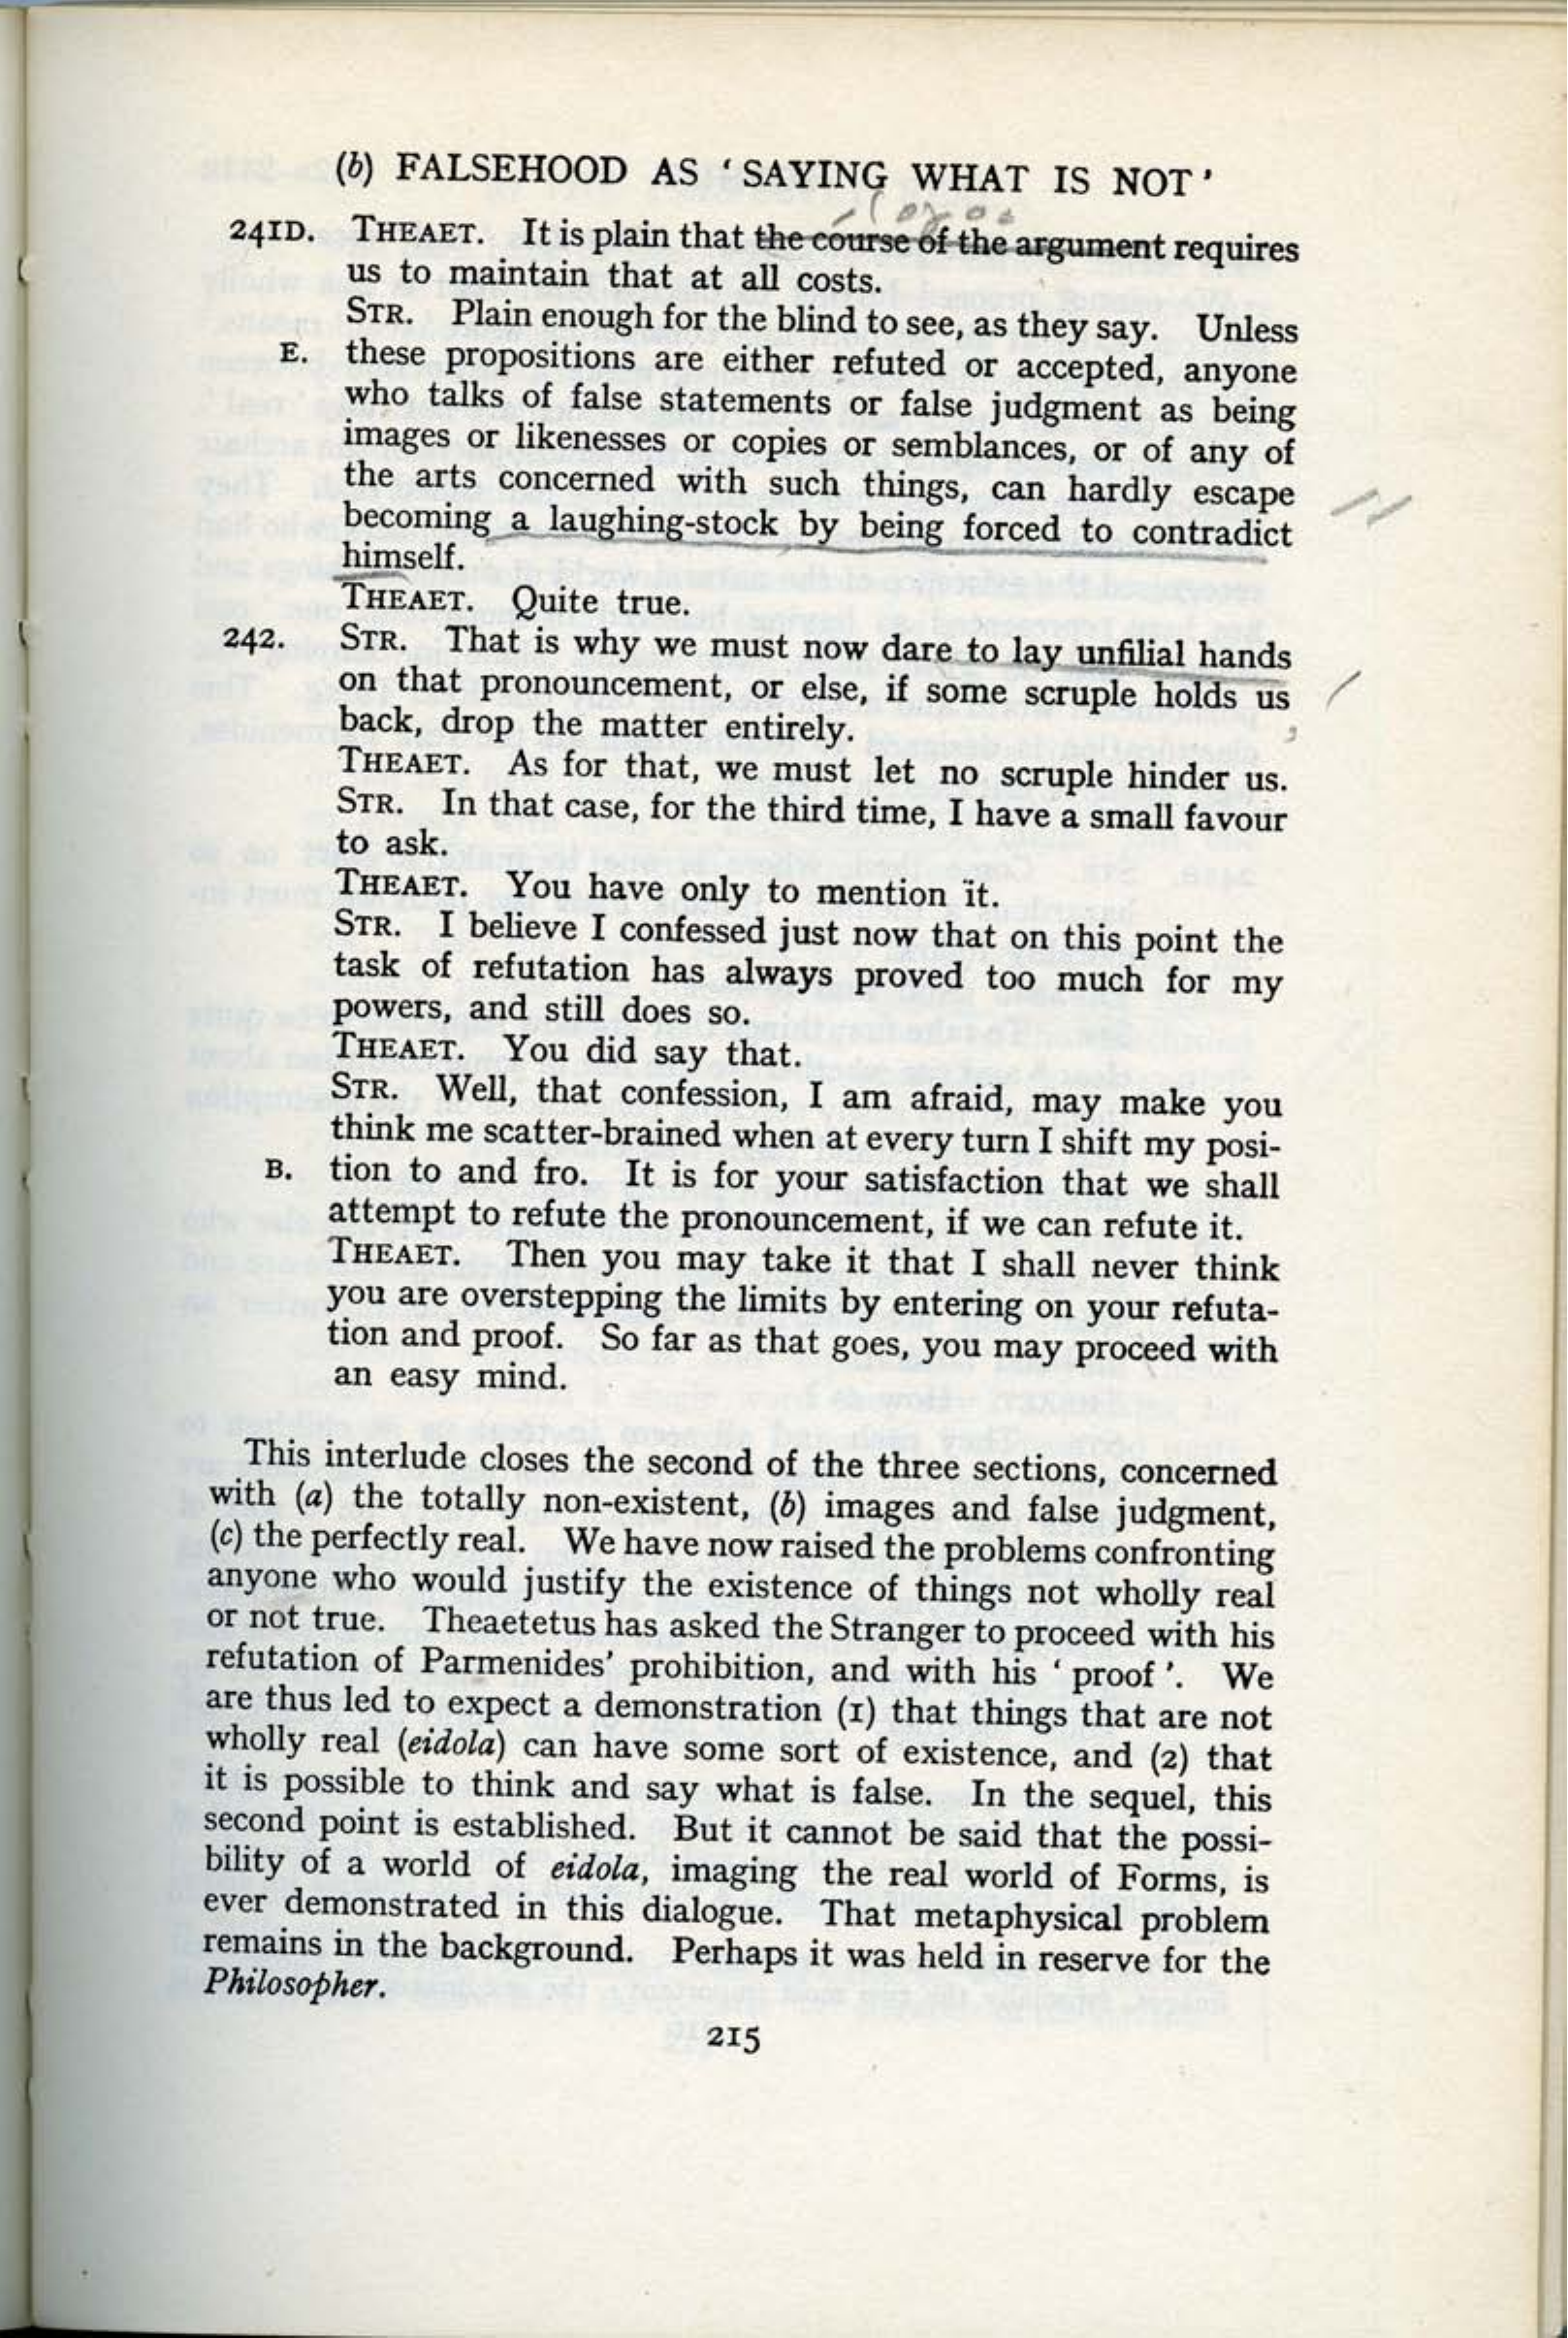 (b) FALSEHOOD AS ‘SAYING WHAT IS NOT’
241D. THEAET. It is plain that the course of the argument requires
us to maintain that at all costs.
STR. Plain enough for the blind to see, as they say. Unless
E. these propositions are either refuted or accepted, anyone
who talks of false statements or false judgment as being
images or likenesses or copies or semblances, or of any of
the arts concerned with such things, can hardly escape
becoming a laughing-stock by being forced to contradict
himself.
THEAET. Quite true.
242. STR. That is why we must now dare to lay unfilial hands
on that pronouncement, or else, if some scruple holds us
back, drop the matter entirely.
THEAET. As for that, we must let no scruple hinder us.
STR. In that case, for the third time, I have a small favour
to ask.
THEAET. You have only to mention it.
STR. I believe I confessed just now that on this point the
task of refutation has always proved too much for my
powers, and still does so.
THEAET. You did say that.
STR. Well, that confession, I am afraid, may make you
think me scatter-brained when at every turn I shift my posi-
B. tion to and fro. It is for your satisfaction that we shall
attempt to refute the pronouncement, if we can refute it.
THEAET. Then you may take it that I shall never think
you are overstepping the limits by entering on your refuta-
tion and proof. So far as that goes, you may proceed with
an easy mind.
This interlude closes the second of the three sections, concerned
with (a) the totally non-existent, (b) images and false judgment,
(c) the perfectly real. We have now raised the problems confronting
anyone who would justify the existence of things not wholly real
or not true. Theaetetus has asked the Stranger to proceed with his
refutation of Parmenides’ prohibition, and with his ‘proof’. We
are thus led to expect a demonstration (1) that things that are not
wholly real (eidola) can have some sort of existence, and (2) that
it is possible to think and say what is false. In the sequel, this
second point is established. But it cannot be said that the possi-
bility of a world of eidola, imaging the real world of Forms, is
ever demonstrated in this dialogue. That metaphysical problem
remains in the background. Perhaps it was held in reserve for the
Philosopher.
215